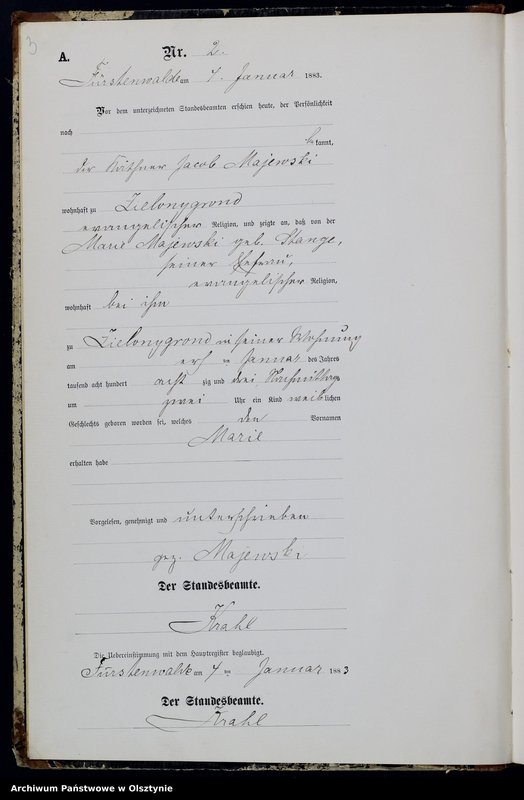 3
A.
Nr. 2.
Fürstenwalde am 4. Januar 1883.
Vor dem unterzeichneten Standesbeamten erschien heute, der Persönlichkeit
nach
bekannt,
der Käthner Jacob Majewski
wohnhaft zu Zielonygrond
evangelischer Religion, und zeigte an, daß von der
Marie Majewski geb. Stange,
seiner Ehefrau,
evangelischer Religion,
wohnhaft bei ihm
zu Zielonygrond in seiner Wohnung
am ersten Januar des Jahres
tausend acht hundert acht zig und drei, Nachmittags
um zwei Uhr ein Kind weiblichen
Geschlechts geboren worden sei, welches den Vornamen
Marie
erhalten habe
Vorgelesen, genehmigt und unterschrieben
gez. Majewski
Der Standesbeamte.
Krahl
Die Uebereinstimmung mit dem Hauptregister beglaubigt.
Fürstenwalde am 4 ten Januar 1883
Der Standesbeamte.
Krahl
Archiwum Państwowe w Olsztynie